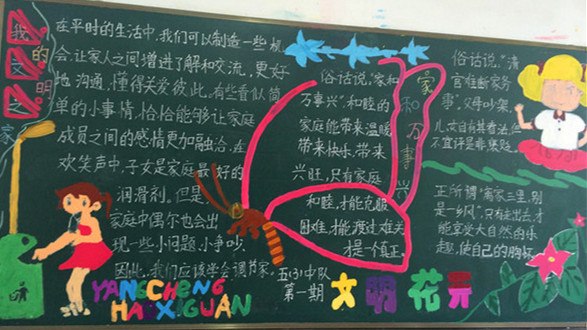 我
的
文
明
之
家
在平时的生活中,我们可以制造一些机
会,让家人之间增进了解和交流,更好
地沟通,懂得关爱彼此,有些看似简
单的小事情,恰恰能够让家庭
成员之间的感情更加融洽,在
欢笑声中,子女是家庭最好的
润滑剂。但是
家庭中偶尔也会出
现一些小问题,小争吵
因此,我们应该学会调节家。
YANGCHENG
HAOXIGUAN
俗话说,“家和
万事兴”,和睦的
家庭能带来温暖
带来快乐,带来
兴旺,只有家庭
和睦,才能克服
困难,才能渡过难关
才是一个真正。
家
和
万
事
兴
五(3)中队
第一期
文明花开
俗话说,“清
官难断家务
事”,父母吵架
儿女自有其看法但
不宜评是非焦躁。
正所谓“离家三里,别
是一乡风”,只有走出去,才
能享受大自然的乐
趣,使自己的胸怀